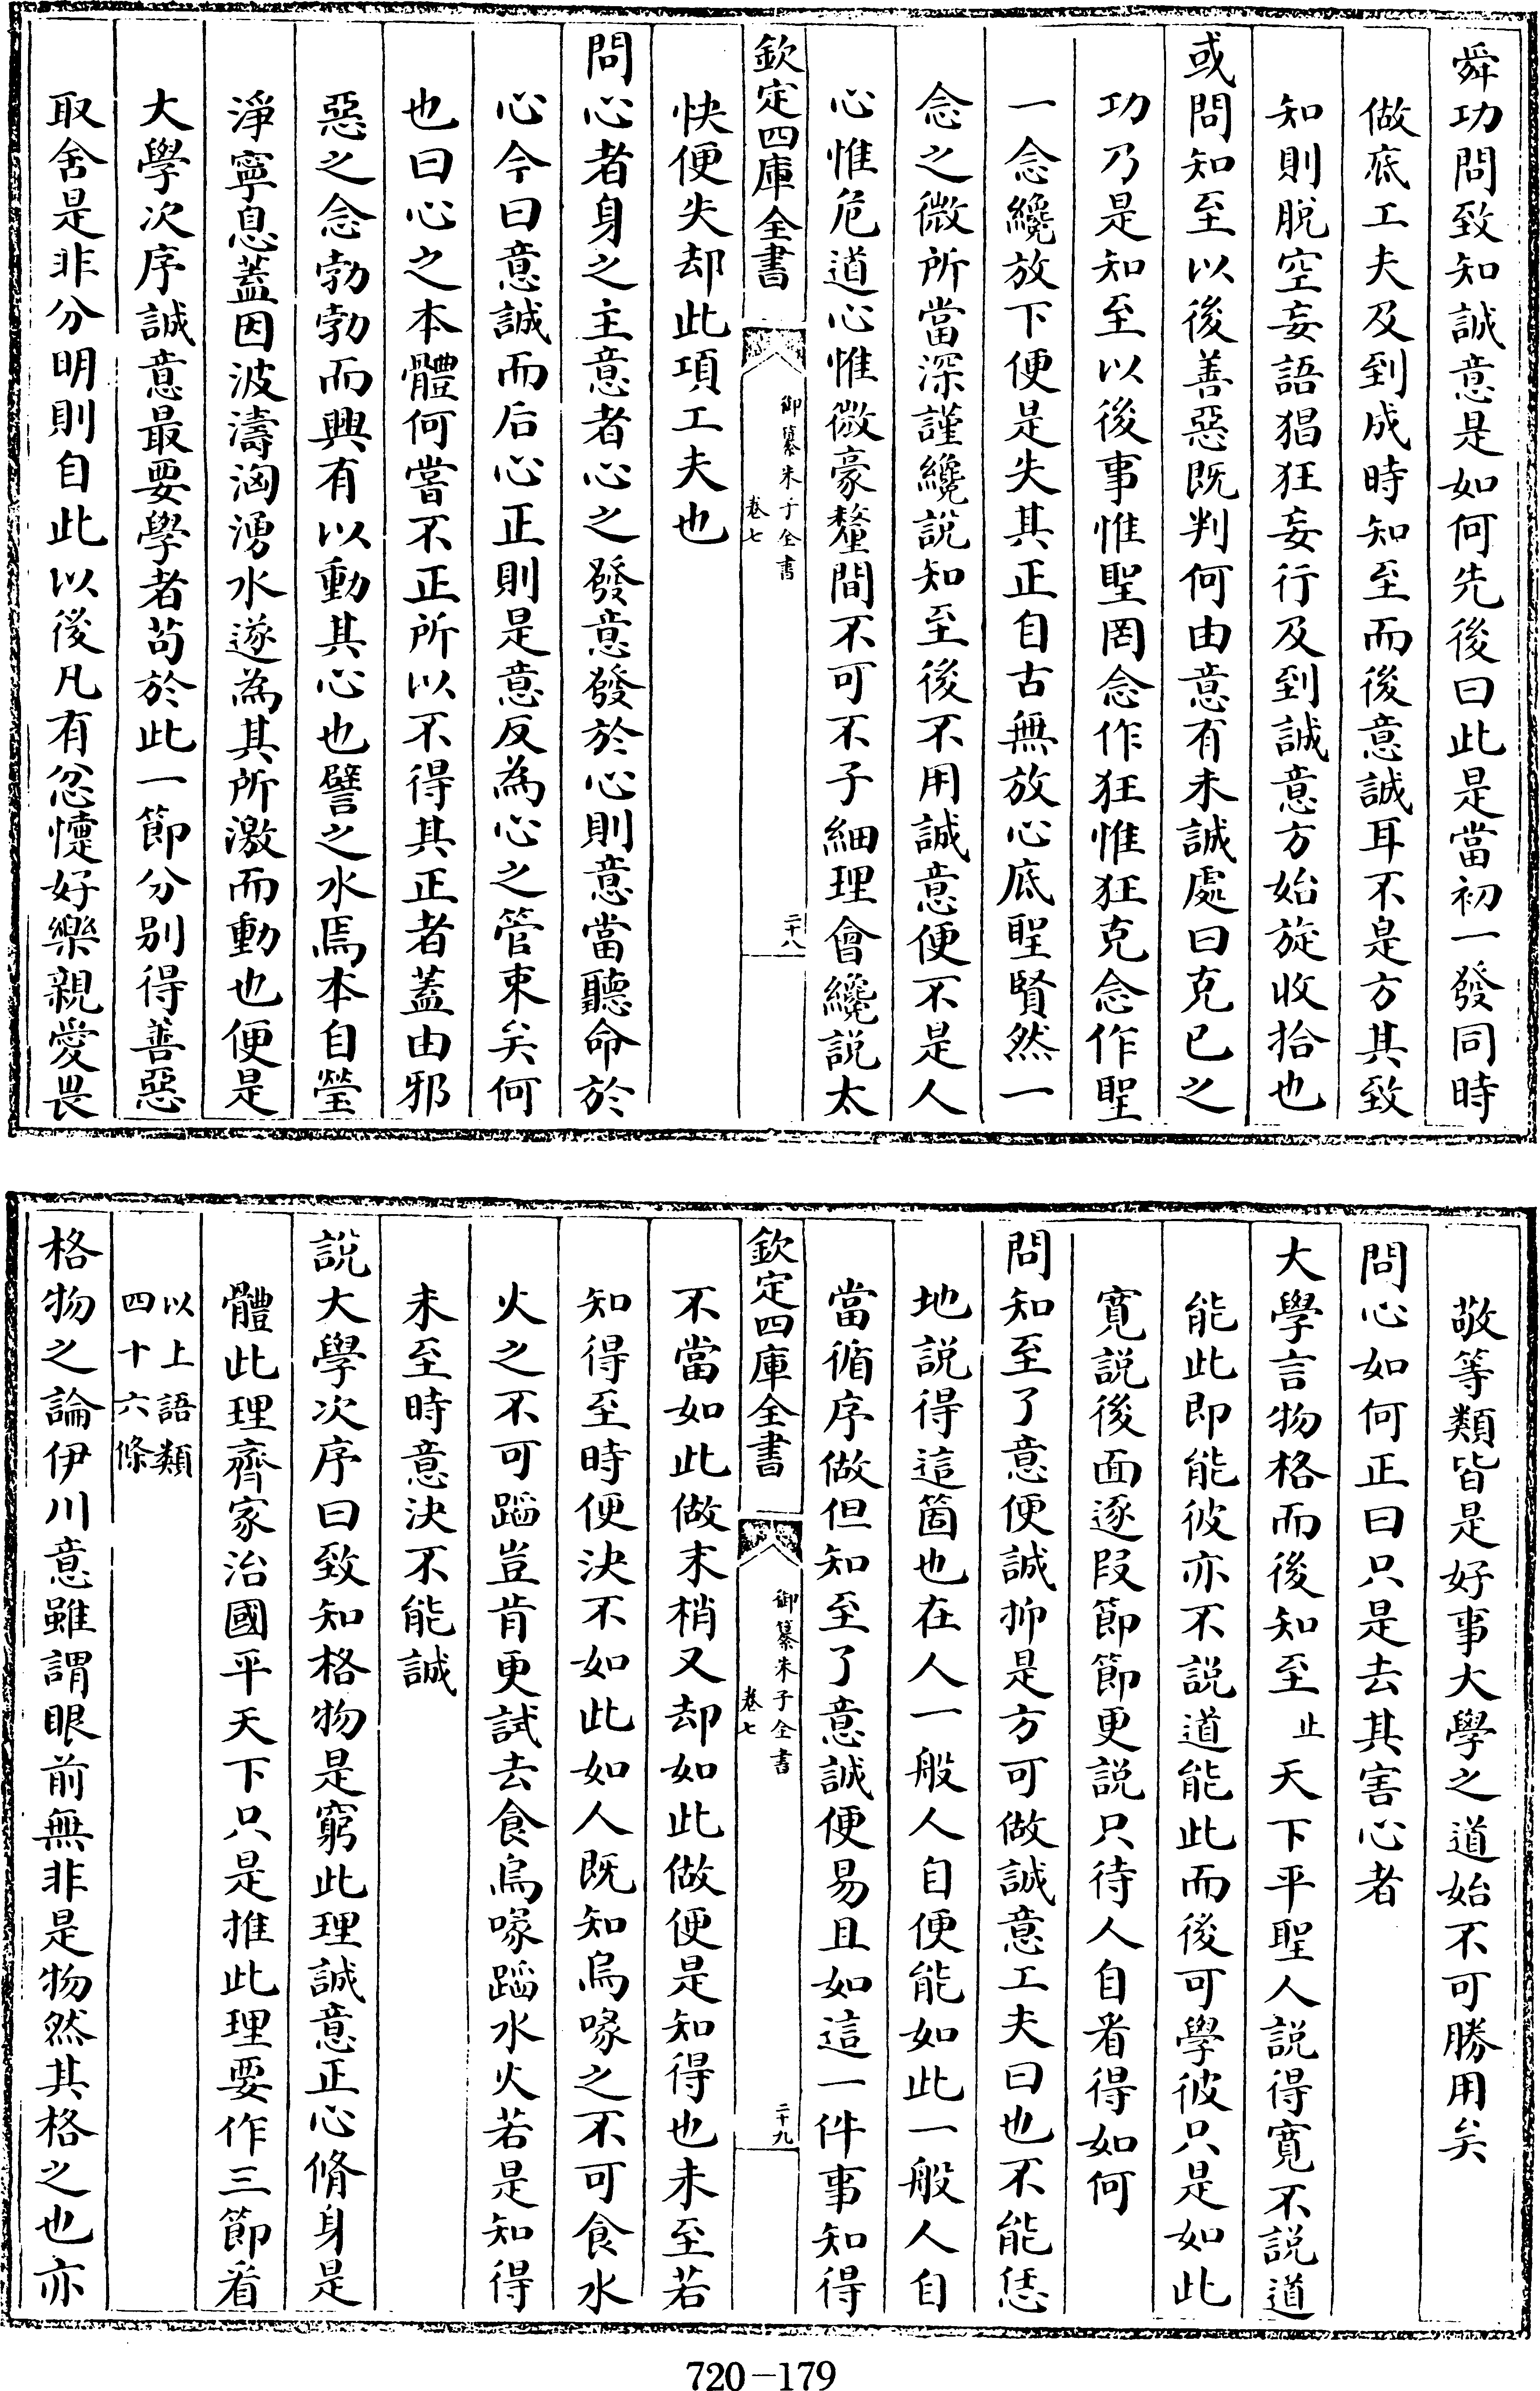 舜功問致知誠意是如何先後曰此是當初一發同時
做底工夫及到成時知至而後意誠耳不是方其致
知則脫空妄語猖狂妄行及到誠意方始旋收拾也
或問知至以後善惡既判何由意有未誠處曰克已之
功乃是知至以後事惟聖罔念作狂惟狂克念作聖
一念纔放下便是失其正自古無放心底聖賢然一
念之微所當深謹纔說知至後不用誠意便不是人
心惟危道心惟微豪釐間不可不子細理會纔說太
快便失却此項工夫也
欽定四庫全書
御纂朱子全書
卷七
二十八
問心者身之主意者心之發意發於心則意當聽命於
心今曰意誠而后心正則是意反為心之管束矣何
也曰心之本體何嘗不正所以不得其正者蓋由邪
惡之念勃勃而興有以動其心也譬之水焉本自瑩
淨寧息蓋因波濤洶湧水遂為其所激而動也便是
大學次序誠意最要學者苟於此一節分别得善惡
取舍是非分明則自此以後凡有忿懥好樂親愛畏
敬等類皆是好事大學之道始不可勝用矣
問心如何正曰只是去其害心者
大學言物格而後知至止天下平聖人説得寛不説道
能此即能彼亦不説道能此而後可學彼只是如此
寛説後面逐段節節更説只待人自看得如何
問知至了意便誠抑是方可做誠意工夫曰也不能恁
地説得這箇也在人一般人自便能如此一般人自
當循序做但知至了意誠便易且如這一件事知得
欽定四庫全書
御纂朱子全書
卷七
二十九
不當如此做末梢又却如此做便是知得也未至若
知得至時便決不如此如人既知烏喙之不可食水
火之不可蹈豈肯更試去食烏喙蹈水火若是知得
未至時意決不能誠
説大學次序曰致知格物是窮此理誠意正心脩身是
體此理齊家治國平天下只是推此理要作三節看
以上語類
四十六條
格物之論伊川意雖謂眼前無非是物然其格之也亦
720-179